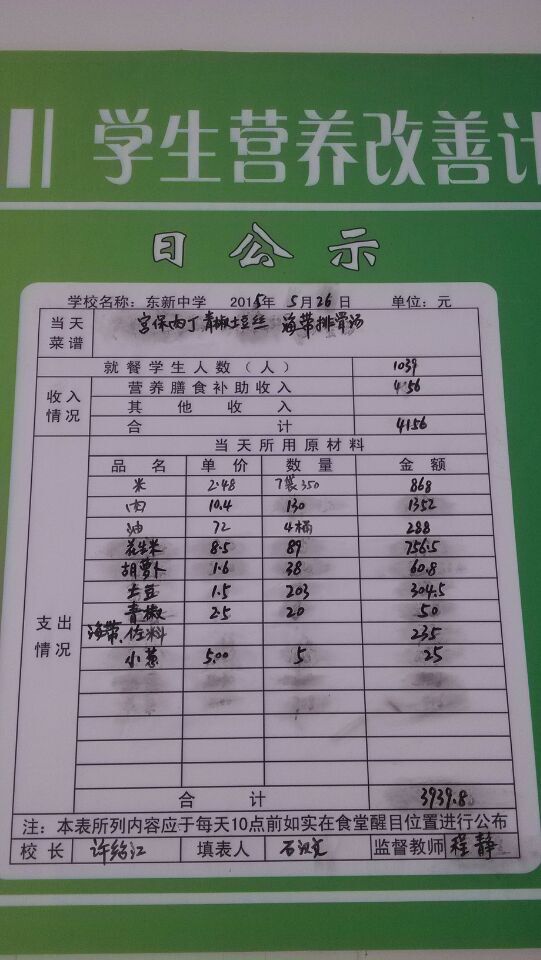 学生营养改善计
日公示
学校名称：东新中学 2015年5月26日 单位：元
当天菜谱 宫保肉丁 青椒土豆丝 海带排骨汤
就餐学生人数（人） 1039
收入情况 营养膳食补助收入 4156
其他收入
合计 4156
支出情况 当天所用原材料
品名 单价 数量 金额
米 2.48 7袋350 868
肉 10.4 130 1352
油 72 4桶 288
花生米 8.5 89 756.5
胡萝卜 1.6 38 60.8
土豆 1.5 203 304.5
青椒 2.5 20 50
海带、佐料 235
小葱 5.00 5 25
合计 3939.8
注：本表所列内容应于每天10点前如实在食堂醒目位置进行公布
校长 许绍江 填表人 石 监督教师 程静